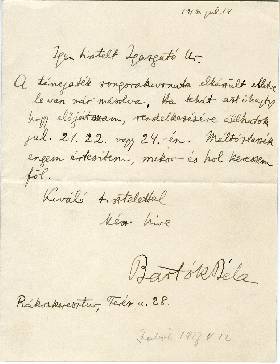 Igen tisztelt Igazgató Úr.
A táncjáték zongorakivonata elkészült
le van már másolva. Ha tehát azt óhajtja
hogy eljátsszam, rendelkezésére állhatok
jul. 21. 22. vagy 24-én. Méltóztassék
engem értesíteni, mikor és hol keressem
föl.
Kiváló tisztelettel
kész híve
Bartók Béla
Rákoskeresztur, Teréz u. 28.